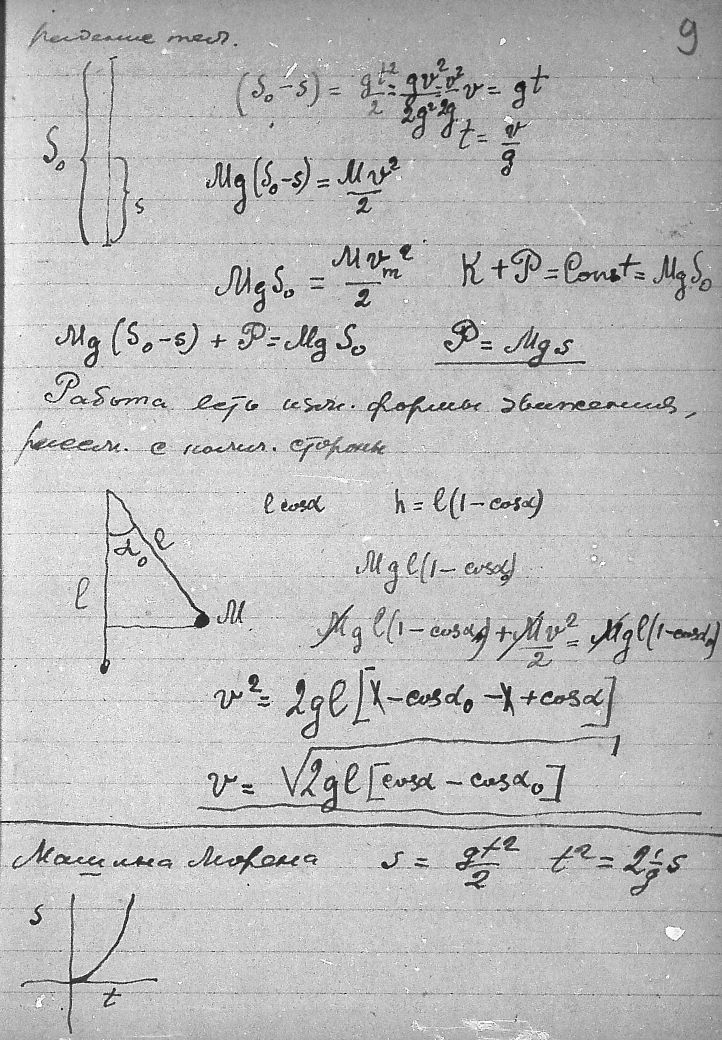 падение тел. 9
(S₀-s) = gt²/2 = gv²/2g² = v²/2g v = gt
t = v/g
S₀
s
Mg(S₀-s) = Mv²/2
MgS₀ = Mvₘ²/2 K + P = Const = MgS₀
Mg(S₀-s) + P = MgS₀ P = Mgs
Работа есть изм. формы движения,
рассм. с колич. стороны
l cosα h = l(1-cosα)
α₀ l
Mgl(1-cosα₀)
l M
Mgl(1-cosα) + Mv²/2 = Mgl(1-cosα₀)
v² = 2gl[1-cosα₀-1+cosα]
v = √2gl[cosα-cosα₀]
Машина Морена s = gt²/2 t² = 2 1/g s
s
t